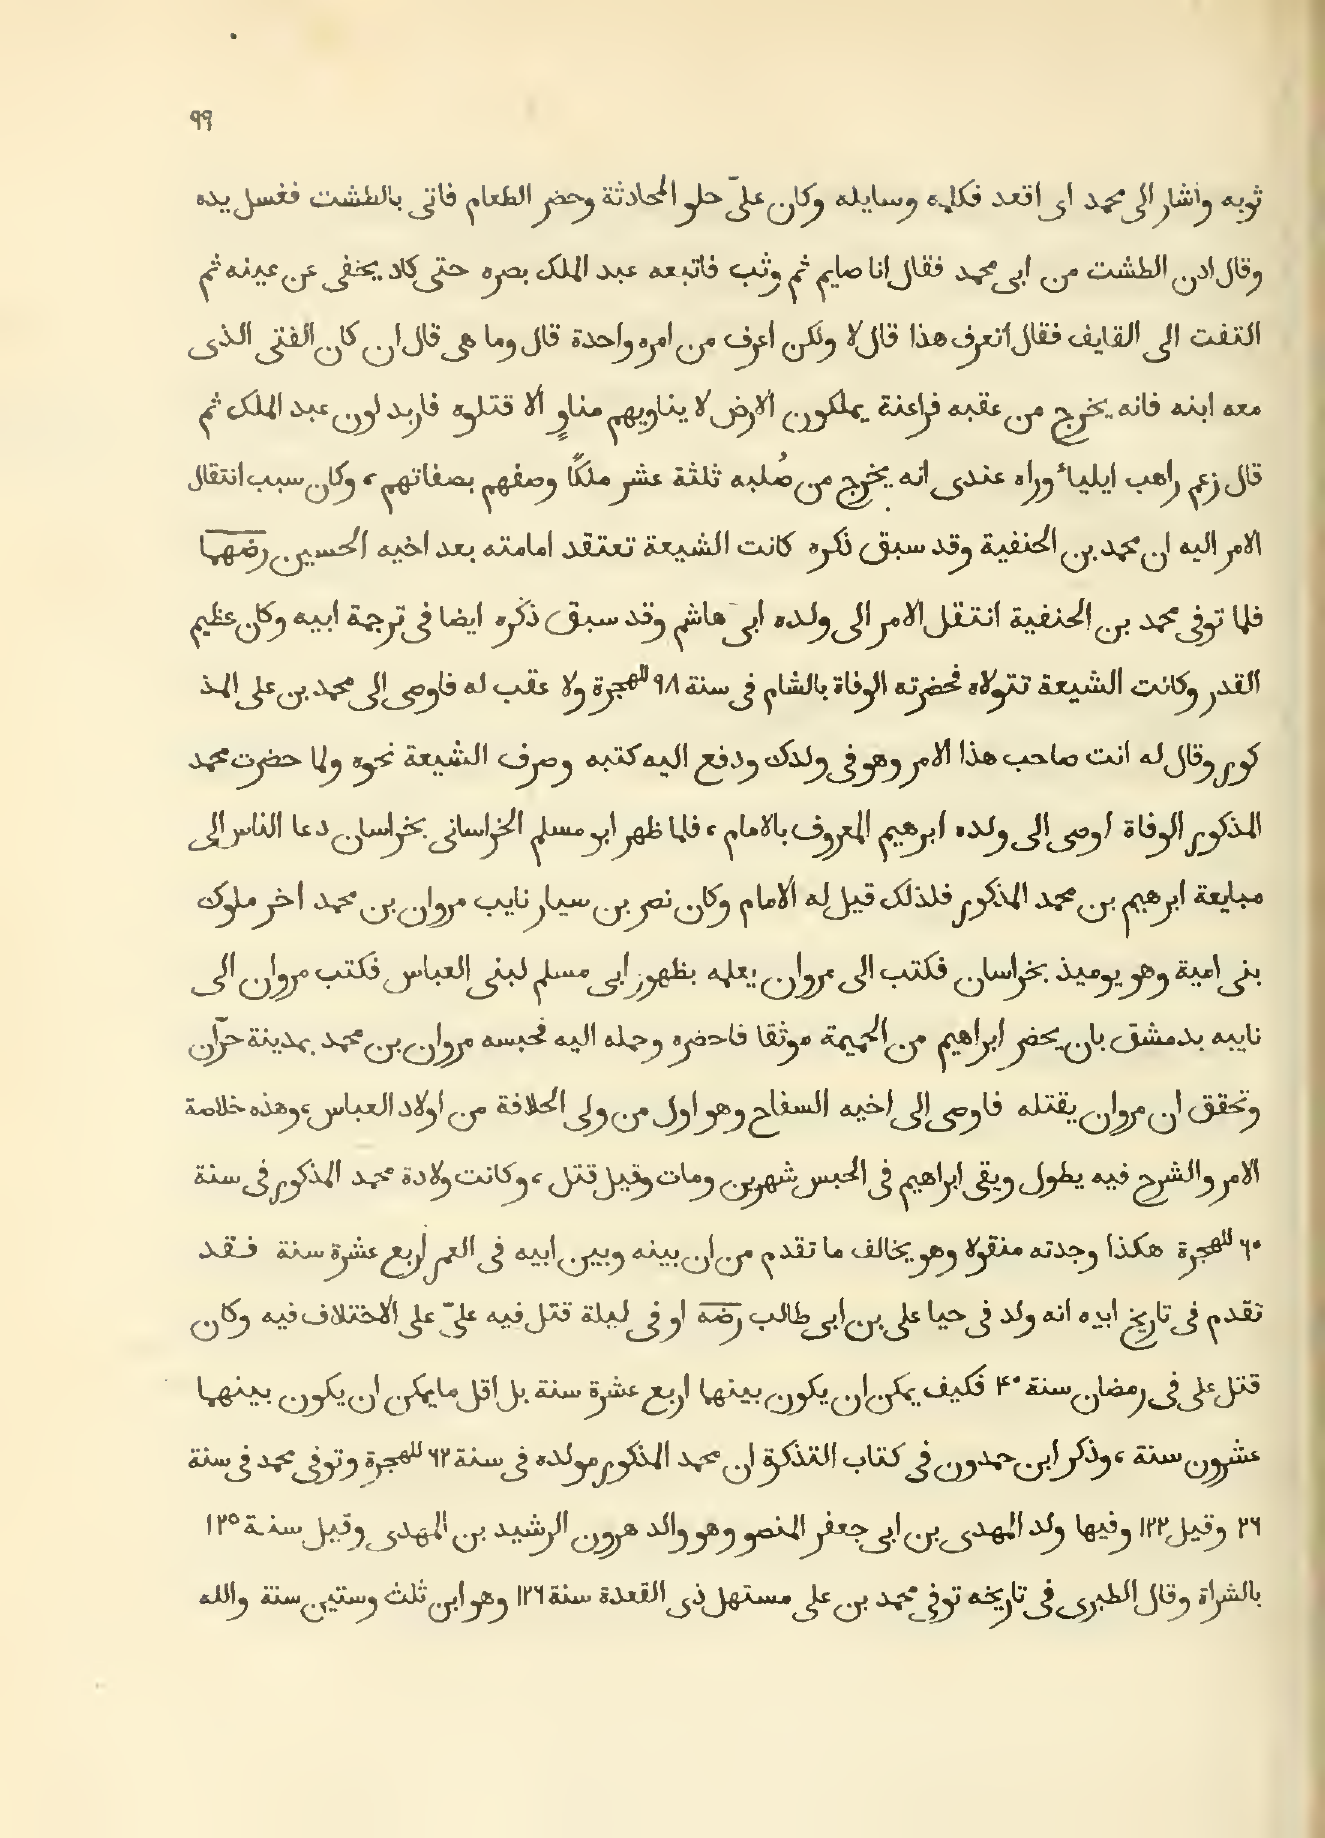 ٩٩
ثوبه واشار الى محمد اى اقعد فكلمه وسايله وكان علىّ حلو المحادثة وحضر الطعام فاتى بالطشت فغسل يده
وقال ادن الطشت من ابى محمد فقال انا صايم ثم وثب فاتبعه عبد الملك بصره حتى كاد يخفى عن عينه ثم
التفت الى القايف فقال أتعرف هذا قال لا ولكن اعرف من امره واحدة قال وما هى قال ان كان الفتى الذى
معه ابنه فانه يخرج من عقبه فراعنة يملكون الارض لا يناويهم مناوٍ الا قتلوه فاربد لون عبد الملك ثم
قال زعم راهب ايلياء وراه عندى انه يخرج من صُلبه ثلثة عشر ملكًا وصفهم بصفاتهم ، وكان سبب انتقال
الامر اليه ان محمد بن الحنفية وقد سبق ذكره كانت الشيعة تعتقد امامته بعد اخيه الحسين رضهما
فلما توفى محمد بن الحنفية انتقل الامر الى ولده ابى هاشم وقد سبق ذكره ايضا فى ترجمة ابيه وكان عظيم
القدر وكانت الشيعة تتولاه فحضرته الوفاة بالشام فى سنة ٩٨ للهجرة ولا عقب له فاوصى الى محمد بن على المذ
كور وقال له انت صاحب هذا الامر وهو فى ولدك ودفع اليه كتبه وصرف الشيعة نحوه ولما حضرت محمد
المذكور الوفاة اوصى الى ولده ابرهيم المعروف بالامام ، فلما ظهر ابو مسلم الخراسانى بخراسان دعا الناس الى
مبايعة ابرهيم بن محمد المذكور فلذلك قيل له الامام وكان نصر بن سيار نايب مروان بن محمد اخر ملوك
بنى امية وهو يوميذ بخراسان فكتب الى مروان يعلمه بظهور ابى مسلم لبنى العباس فكتب مروان الى
نايبه بدمشق بان يحضر ابراهيم من الحميمة موثقا فاحضره وحمله اليه فحبسه مروان بن محمد بمدينة حرّان
وتحقق ان مروان يقتله فاوصى الى اخيه السفاح وهو اول من ولى الخلافة من اولاد العباس ، وهذه خلاصة
الامر والشرح فيه يطول وبقى ابراهيم فى الحبس شهرين ومات وقيل قتل ، وكانت ولادة محمد المذكور فى سنة
٦٠ للهجرة هكذا وجدته منقولا وهو يخالف ما تقدم من ان بينه وبين ابيه فى العمر اربع عشرة سنة فقد
تقدم فى تاريخ ابيه انه ولد فى حيا على بن ابى طالب رضه او فى ليلة قتل فيه علىّ على الاختلاف فيه وكان
قتل على فى رمضان سنة ۴٠ فكيف يمكن ان يكون بينهما اربع عشرة سنة بل اقل ما يمكن ان يكون بينهما
عشرون سنة ، وذكر ابن حمدون فى كتاب التذكرة ان محمد المذكور مولده فى سنة ٦٢ للهجرة وتوفى محمد فى سنة
٢٦ وقيل ١٢٢ وفيها ولد المهدى بن ابى جعفر المنصو وهو والد هرون الرشيد بن المهدى وقيل سنة ١٢٥
بالشراة وقال الطبرى فى تاريخه توفى محمد بن على مستهل ذى القعدة سنة ١٢٦ وهو ابن ثلث وستين سنة والله